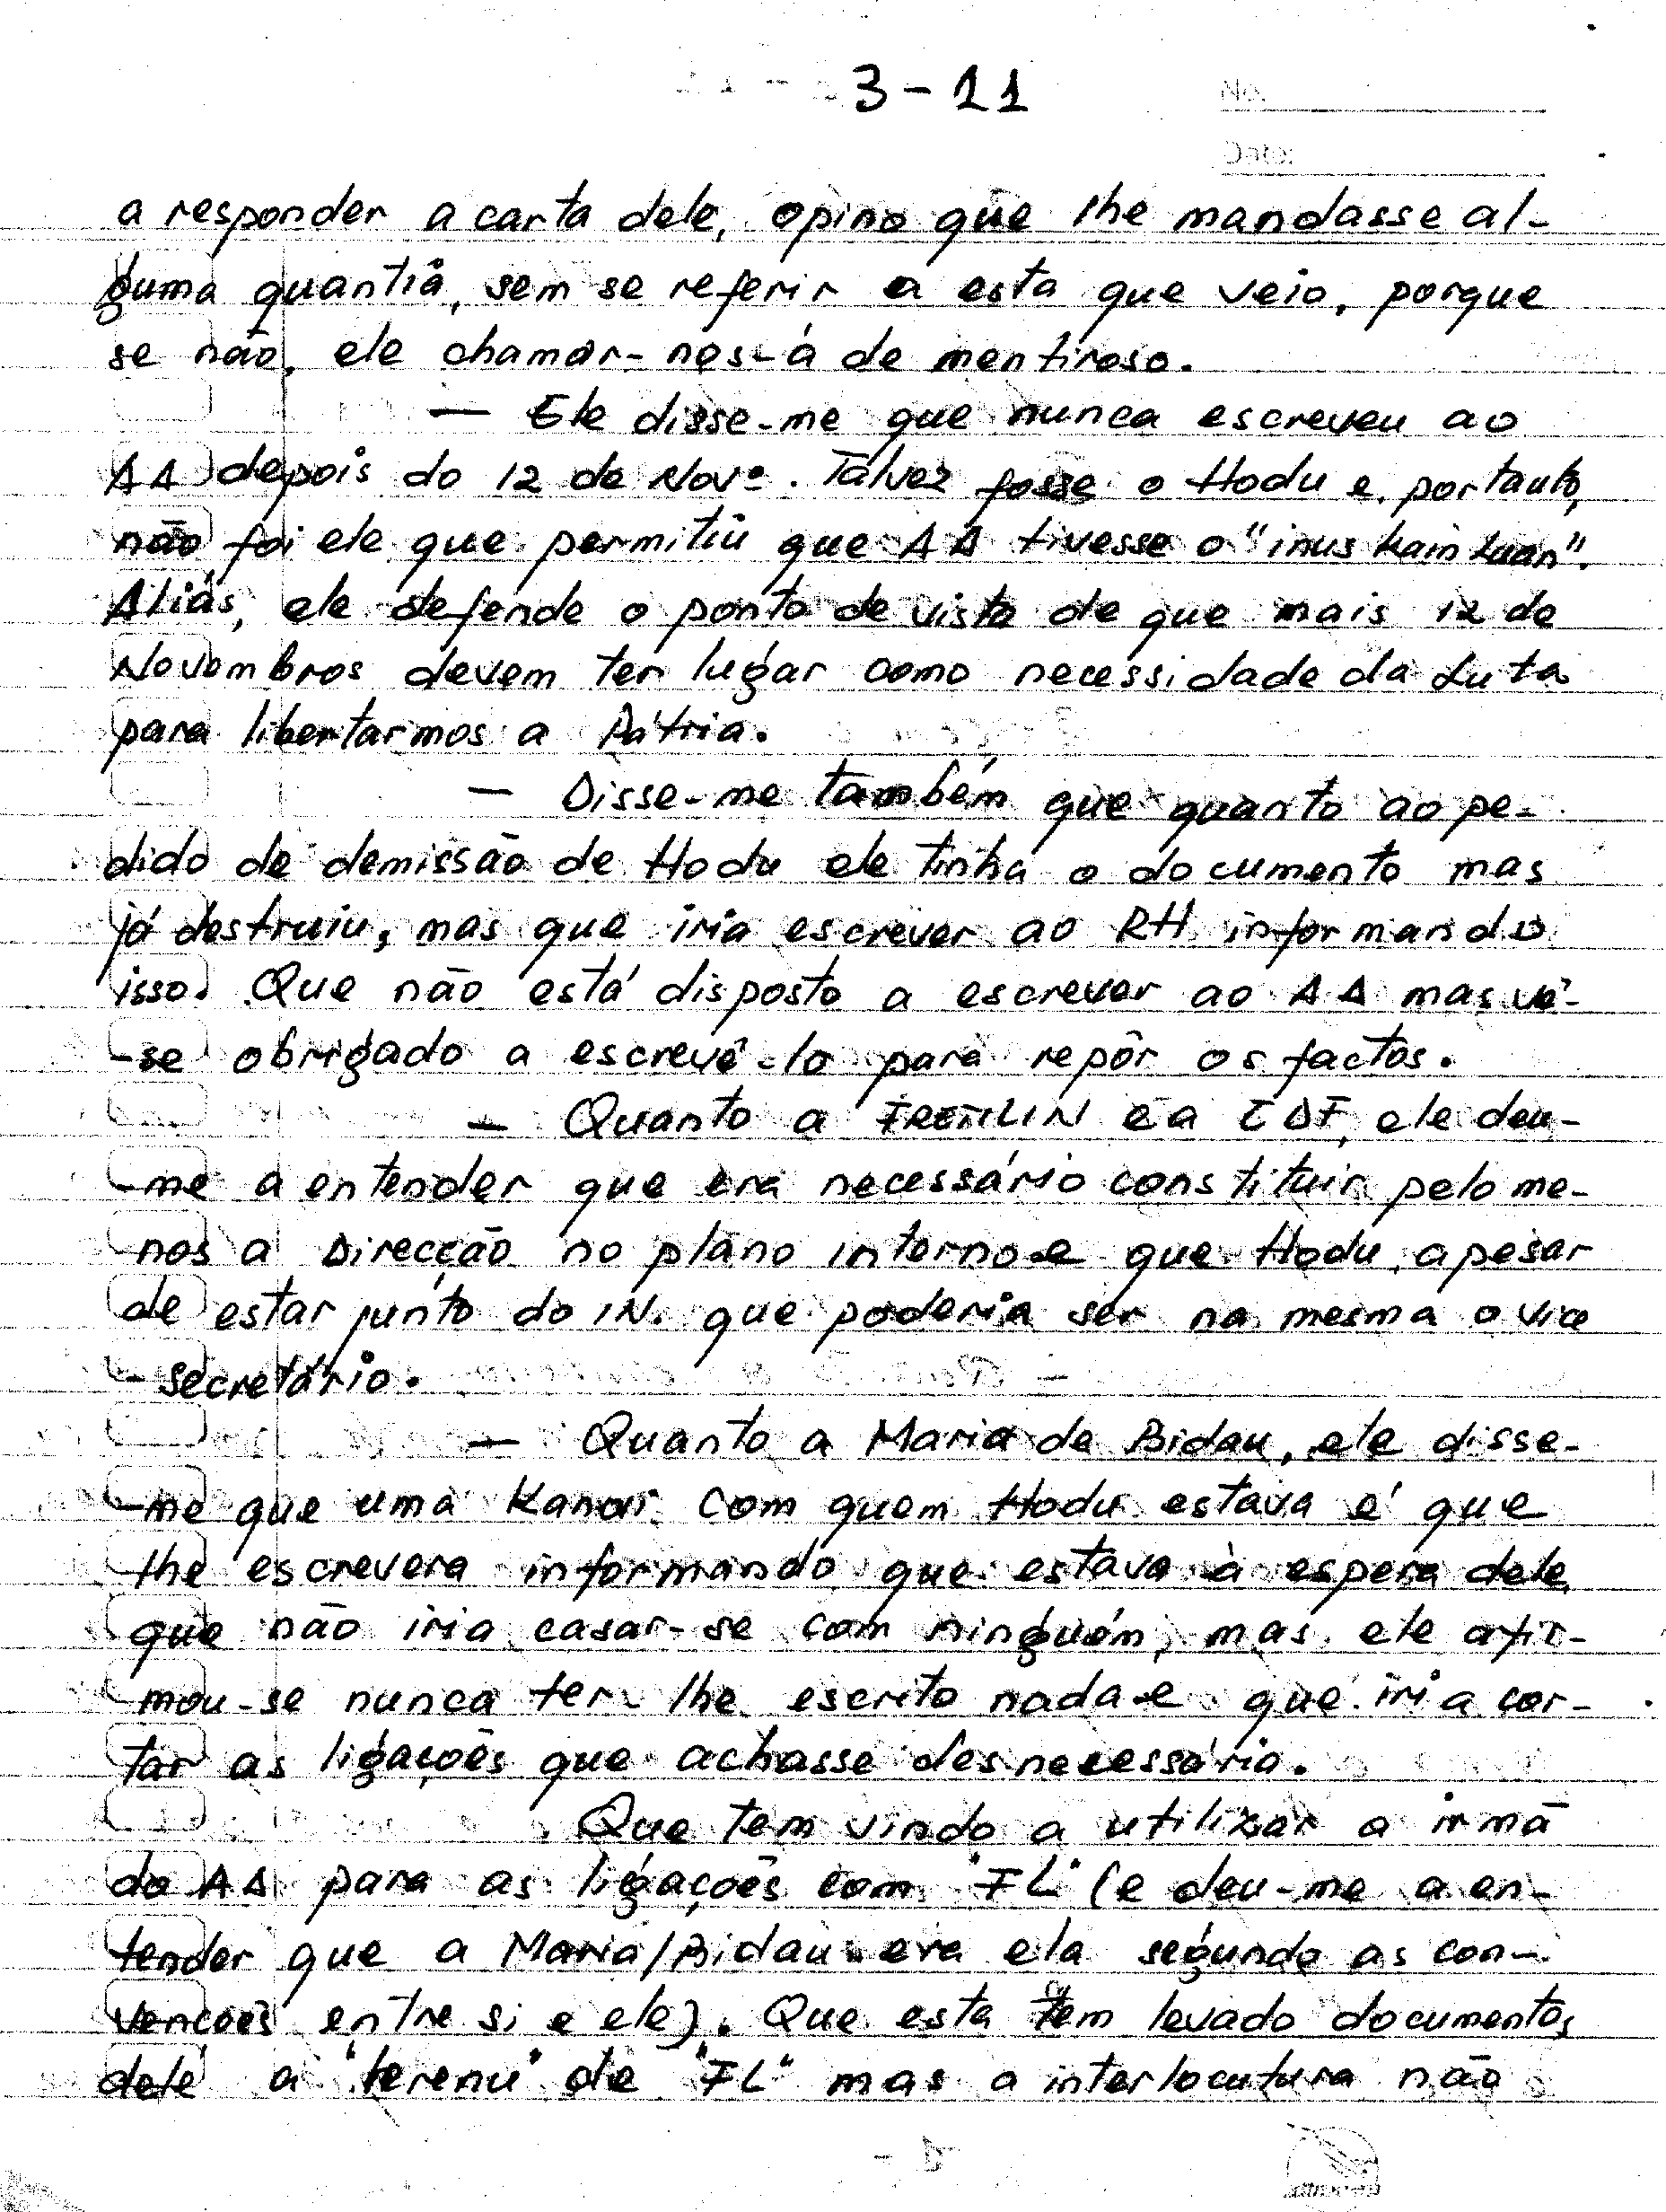 3-11
No.
Date:
a responder a carta dele, opino que lhe mandasse al-
guma quantia, sem se referir a esta que veio, porque
se não, ele chamar-nos-á de mentiroso.
— Ele disse-me que nunca escreveu ao
AA depois do 12 de Novº. Talvez fosse o Hodu e, portanto,
não foi ele que permitiu que AA tivesse o "inus kain luan".
Aliás, ele defende o ponto de vista de que mais 12 de
Novembros devem ter lugar como necessidade da Luta
para libertarmos a Pátria.
— Disse-me também que quanto ao pe-
dido de demissão de Hodu ele tinha o documento mas
já destruiu, mas que iria escrever ao RH informando
isso. Que não está disposto a escrever ao AA mas vê-
-se obrigado a escrevê-lo para repôr os factos.
— Quanto a FRETILIN e a CDF, ele deu-
-me a entender que era necessário constituir pelo me-
nos a Direcção no plano interno e que Hodu, apesar
de estar junto do IN. que poderia ser na mesma o vice
- secretário.
— Quanto a Maria de Bidau, ele disse-
-me que uma Kanoi com quem Hodu estava é que
lhe escrevera informando que estava à espera dele,
que não iria casar-se com ninguém, mas ele afir-
mou-se nunca ter-lhe escrito nada e que iria cor-
tar as ligações que achasse desnecessária.
Que tem vindo a utilizar a irmã
do AA para as ligações com "FL" (e deu-me a en-
tender que a Maria/Bidau era ela segundo as con-
venções entre si e ele). Que esta tem levado documentos
dele a "terenu" de "FL" mas a interlocutura não